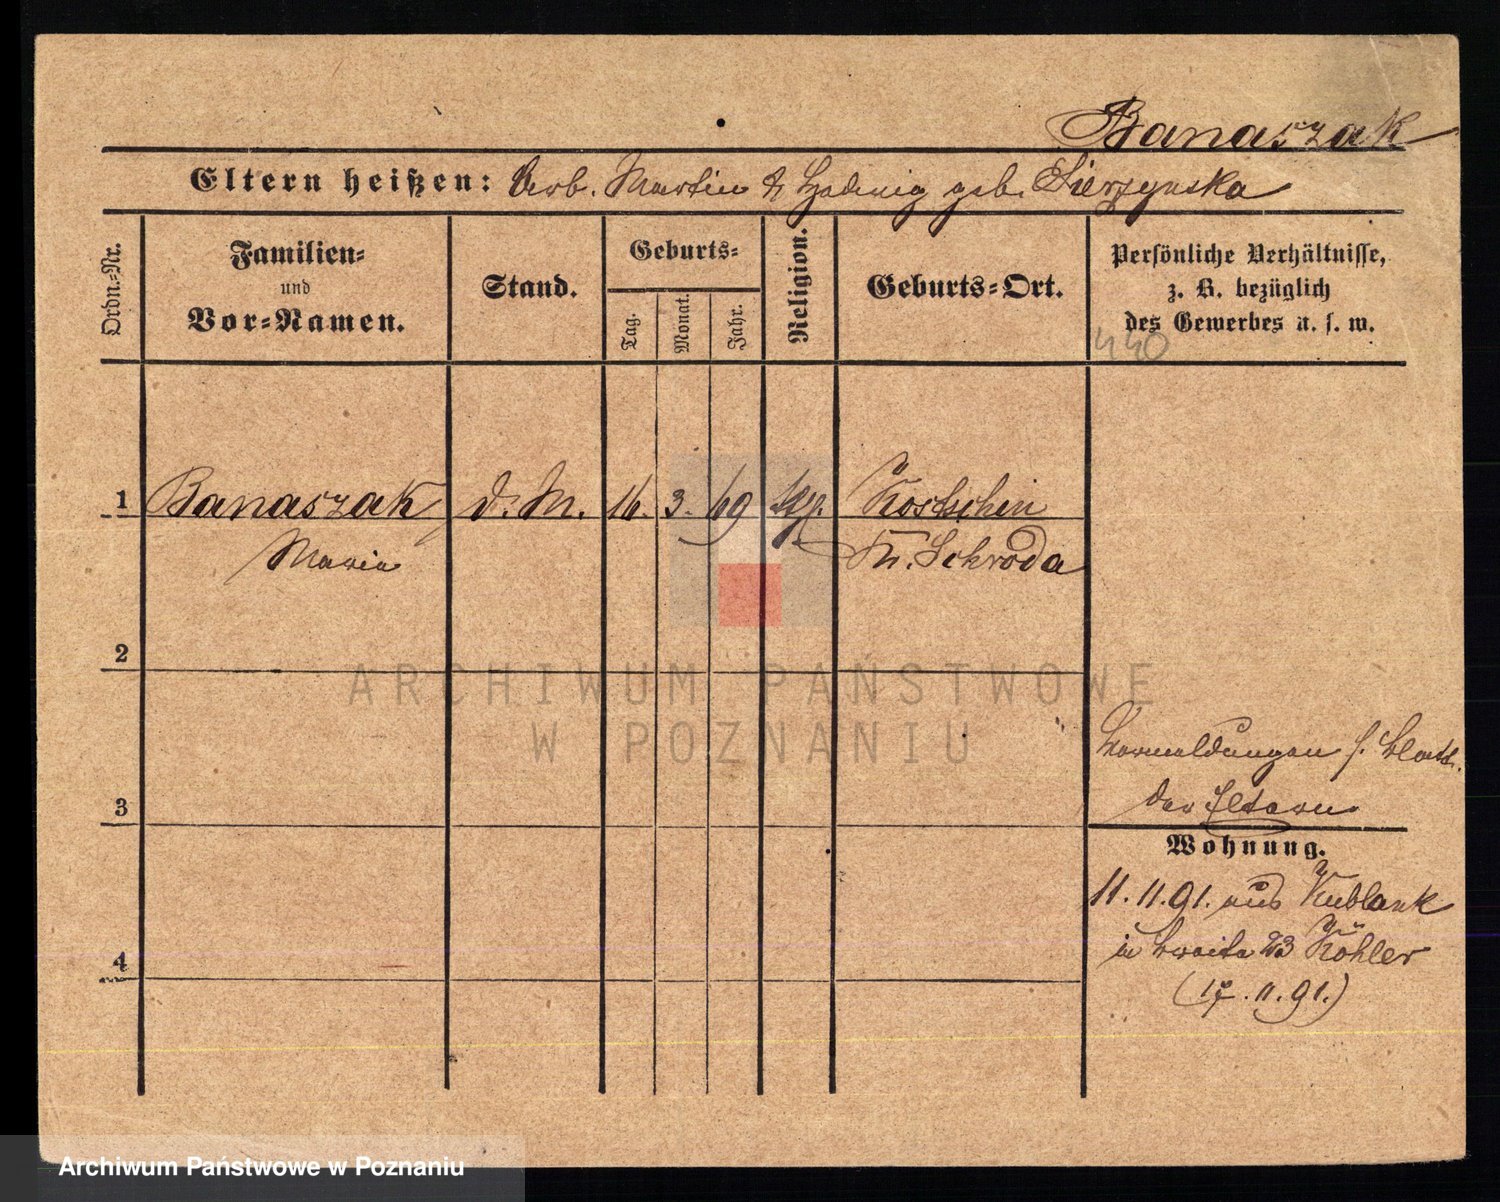 Banaszak
Eltern heißen: Arb. Martin & Hedwig geb. Sierzynska
Ordn.-Nr.
Familien-
und
Vor-Namen.
Stand.
Geburts-
Tag.
Monat.
Jahr.
Religion.
Geburts-Ort.
Persönliche Verhältnisse,
z. B. bezüglich
des Gewerbes u. s. w.
440
1 Banaszak d. M. 16. 3. 69 Kostschin
Maria Kr. Schroda
2
ARCHIWUM PAŃSTWOWE
W POZNANIU
Vormeldungen s. Blatt
3
der Eltern
Wohnung.
11.11.91. aus Kublank
4
in Breite 23 Köhler
(17.11.91.)
Archiwum Państwowe w Poznaniu